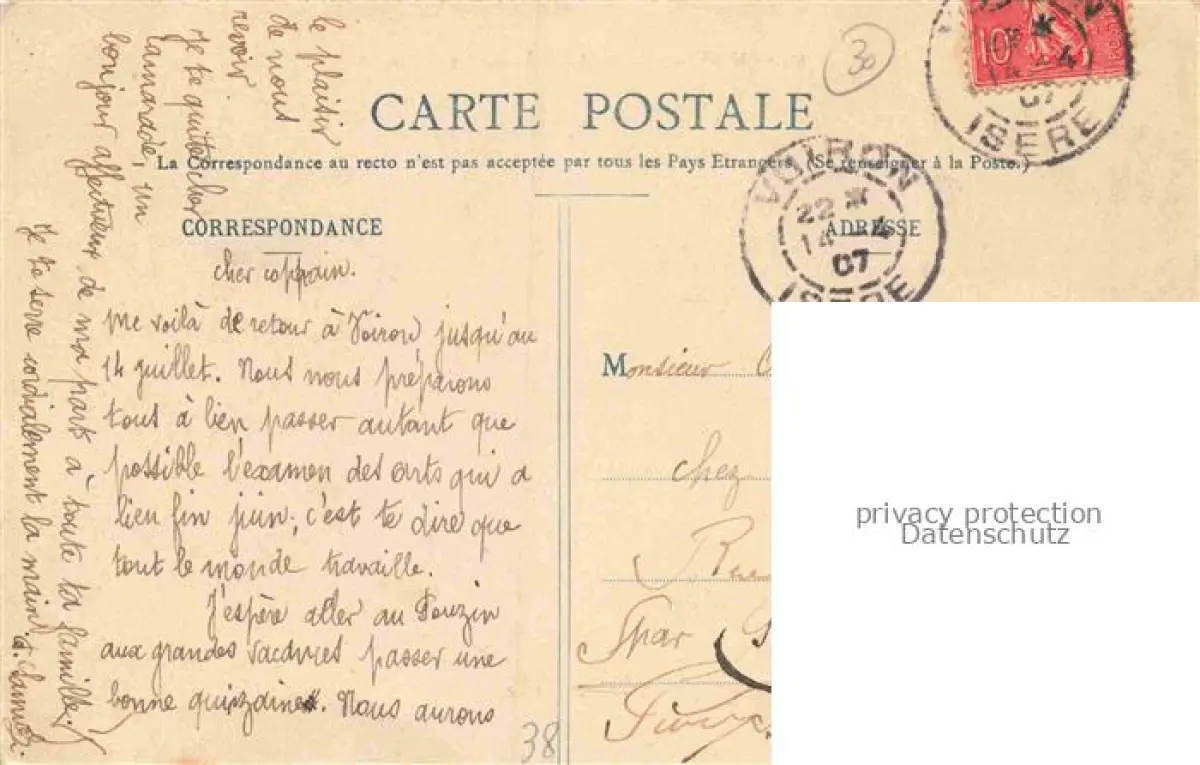 CARTE POSTALE
La Correspondance au recto n'est pas acceptée par tous les Pays Etrangers. (Se renseigner à la Poste.)
CORRESPONDANCE
cher coppain.
Me voilà de retour à Voiron jusqu'au
14 juillet. Nous nous préparons
tous à bien passer autant que
possible l'examen des arts qui a
lieu fin juin; c'est te dire que
tout le monde travaille.
J'espère aller au Pouzin
aux grandes vacances passer une
bonne quinzaine. Nous aurons
le plaisir
de nous
revoir.
Je te quitte cher
camarade, un
bonjour affectueux de ma part à toute ta famille.
Je te serre cordialement la main.
38
30
10
VOIRON
22 *
14 - 4
07
ISERE
* 4
07
ISERE
ADRESSE
Monsieur
chez
Rue
par
privacy protection
Datenschutz